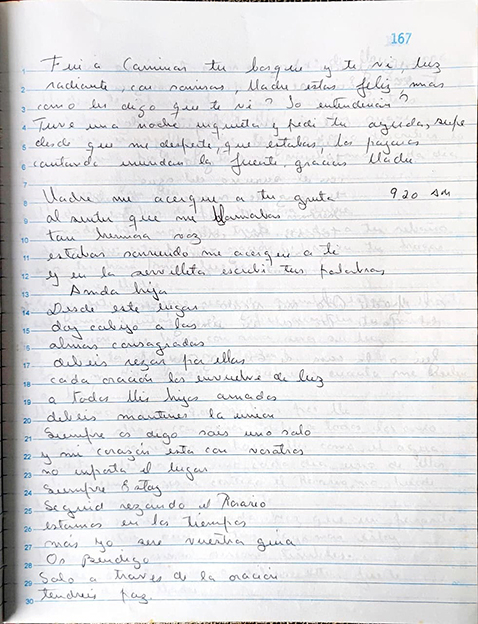 167
Fui a Caminar tu bosque y te vi luz
radiante, con sonrisas, Madre estas feliz, mas
como les digo que te vi? lo entenderan?
Tuve una noche inquieta y pedi tu ayuda, supe
desde que me desperte, que estabas, los pajaros
cantando inundan la fuente, gracias Madre
Madre me acerque a tu gruta 920 AM
al sentir que me llamabas
tan hermosa voz
estabas sonriendo me acerque a ti
y en la servilleta escribi tus palabras
Amada hija
Desde este lugar
doy cobijo a las
almas consagradas
debeis rezar por ellas
cada oración los envuelve de luz
a todos Mis hijos amados
debeis mantener la union
Siempre os digo sois uno solo
y mi corazón esta con vosotros
no importa el lugar
Siempre Estoy
Seguid rezando el Rosario
estamos en los tiempos
más yo sere vuestra guia
Os Bendigo
Solo a traves de la oración
tendreis paz.